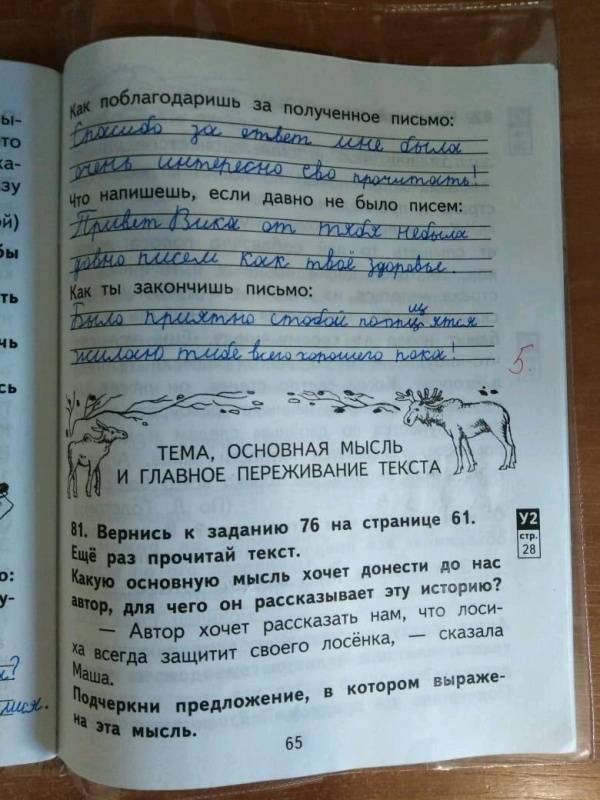 Как поблагодаришь за полученное письмо:
Спасибо за ответ мне была
очень интересно ево прочитать!
Что напишешь, если давно не было писем:
Привет Вика от тябя небыла
давно писем как твоё здоровье.
Как ты закончишь письмо:
Было приятно стобой
жилаю тибе всего хорошего пока!
5.
ТЕМА, ОСНОВНАЯ МЫСЛЬ
И ГЛАВНОЕ ПЕРЕЖИВАНИЕ ТЕКСТА
81. Вернись к заданию 76 на странице 61.
Ещё раз прочитай текст.
У2
стр.
28
Какую основную мысль хочет донести до нас
автор, для чего он рассказывает эту историю?
— Автор хочет рассказать нам, что лоси-
ха всегда защитит своего лосёнка, — сказала
Маша.
Подчеркни предложение, в котором выраже-
на эта мысль.
65